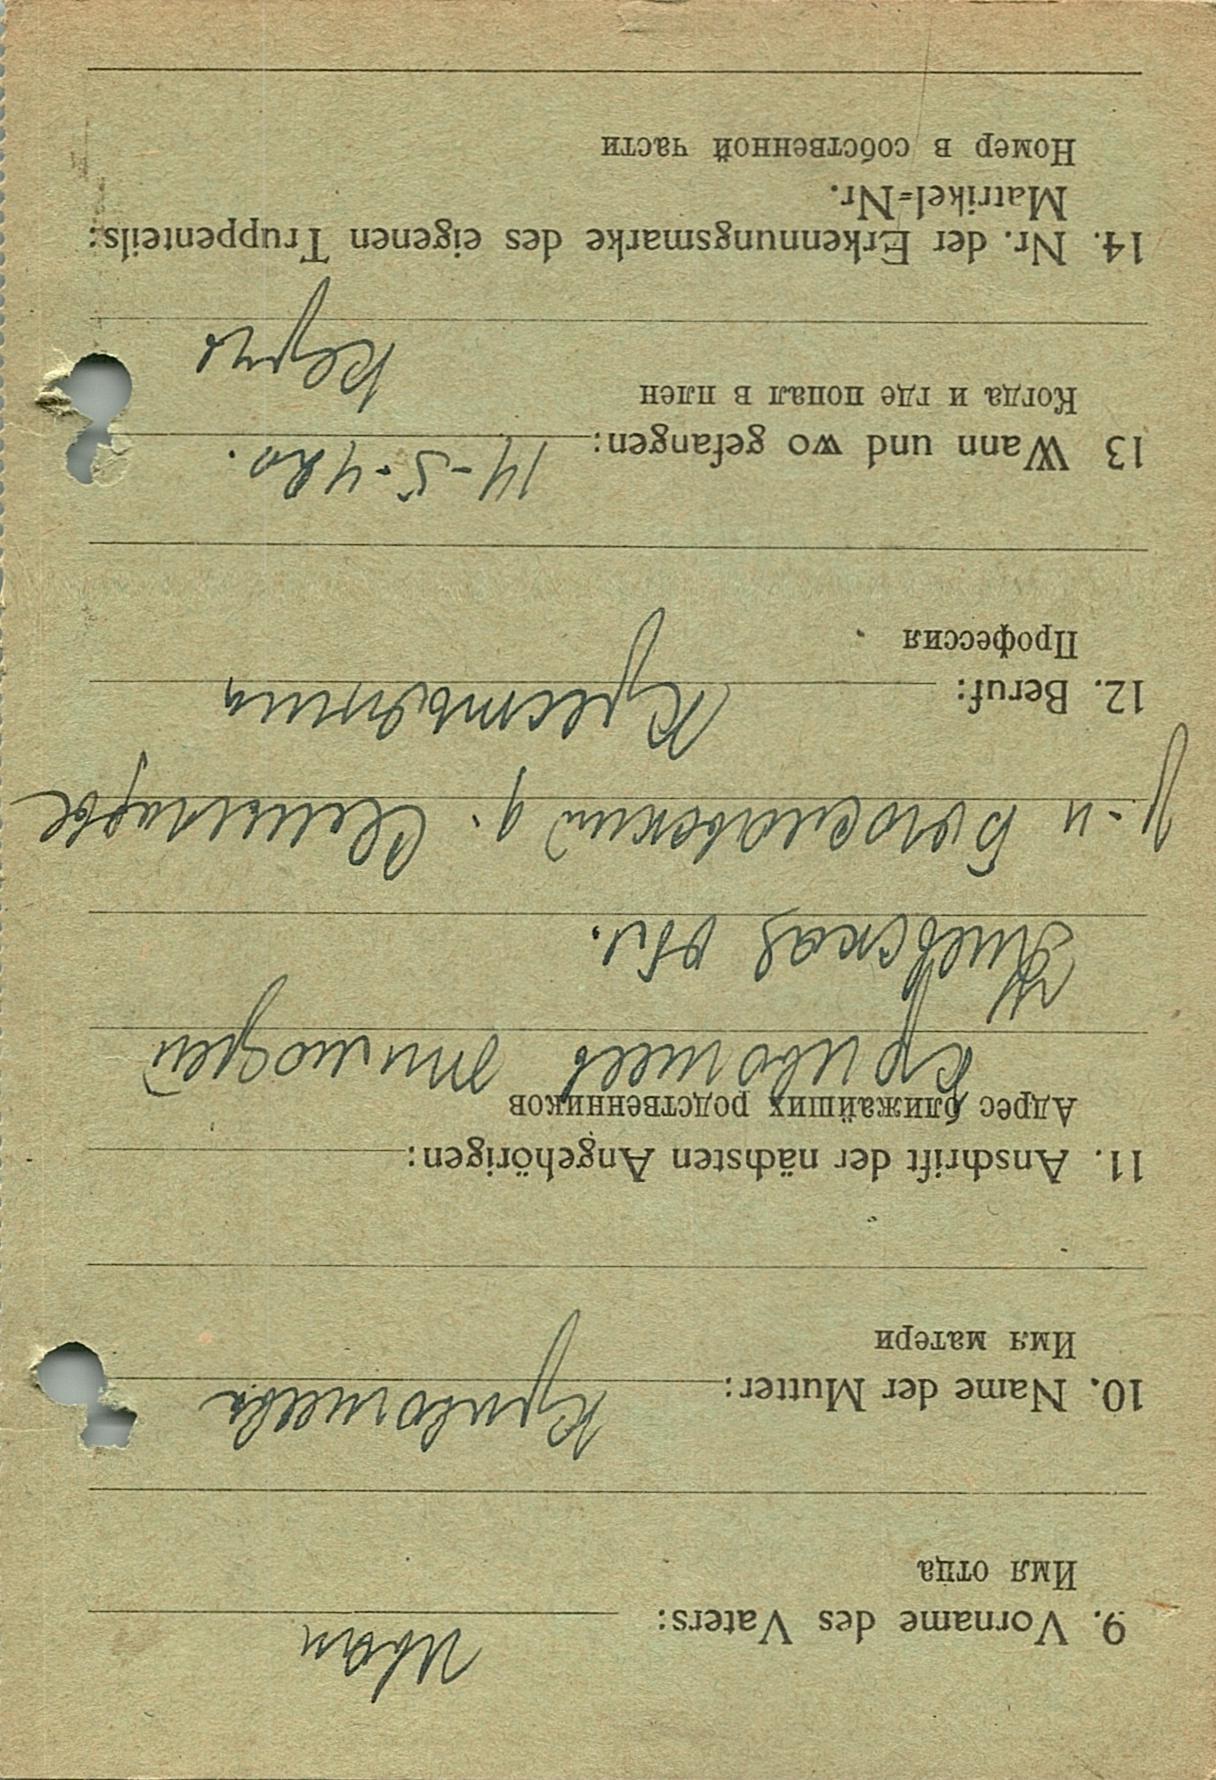 9. Vorname des Vaters: Иван
Имя отца
10. Name der Mutter: Кривошеева
Имя матери
11. Anschrift der nächsten Angehörigen:
Адрес ближайших родственников
Кривошеев Тимофей
Киевская обл.
р-н д.
12. Beruf: Крестьянин
Профессия
13 Wann und wo gefangen: 14-5-42г.
Когда и где попал в плен
Керчь
14. Nr. der Erkennungsmarke des eigenen Truppenteils:
Matrikel-Nr.
Номер в собственной части